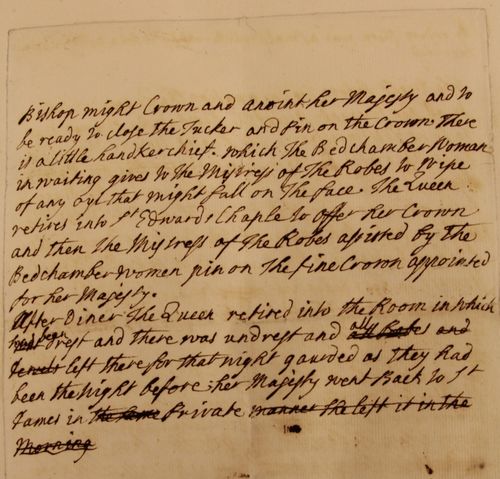 Bishop might Crown and anoint her Majesty and to
be ready to close the Tucker and Pin on the Crown. There
is a little handkerchief. which The Bedchamber Woman
in waiting gives to the Mistress of The Robes to Wipe
of any oyl that might fall on The face. The Queen
retires into St Edwards Chaple to offer her Crown
and then The Mistress of The Robes assisted by The
Bedchamber Women pin on The fine Crown appointed
for her Majesty.
After Diner The Queen retired into the Room in which
had been
was Drest and there was undrest and all Robes and
Jewels left there for that night gaurded as They had
been the Night before: her Majesty went Back to St
James in the same Private manner she left it in the
Morning